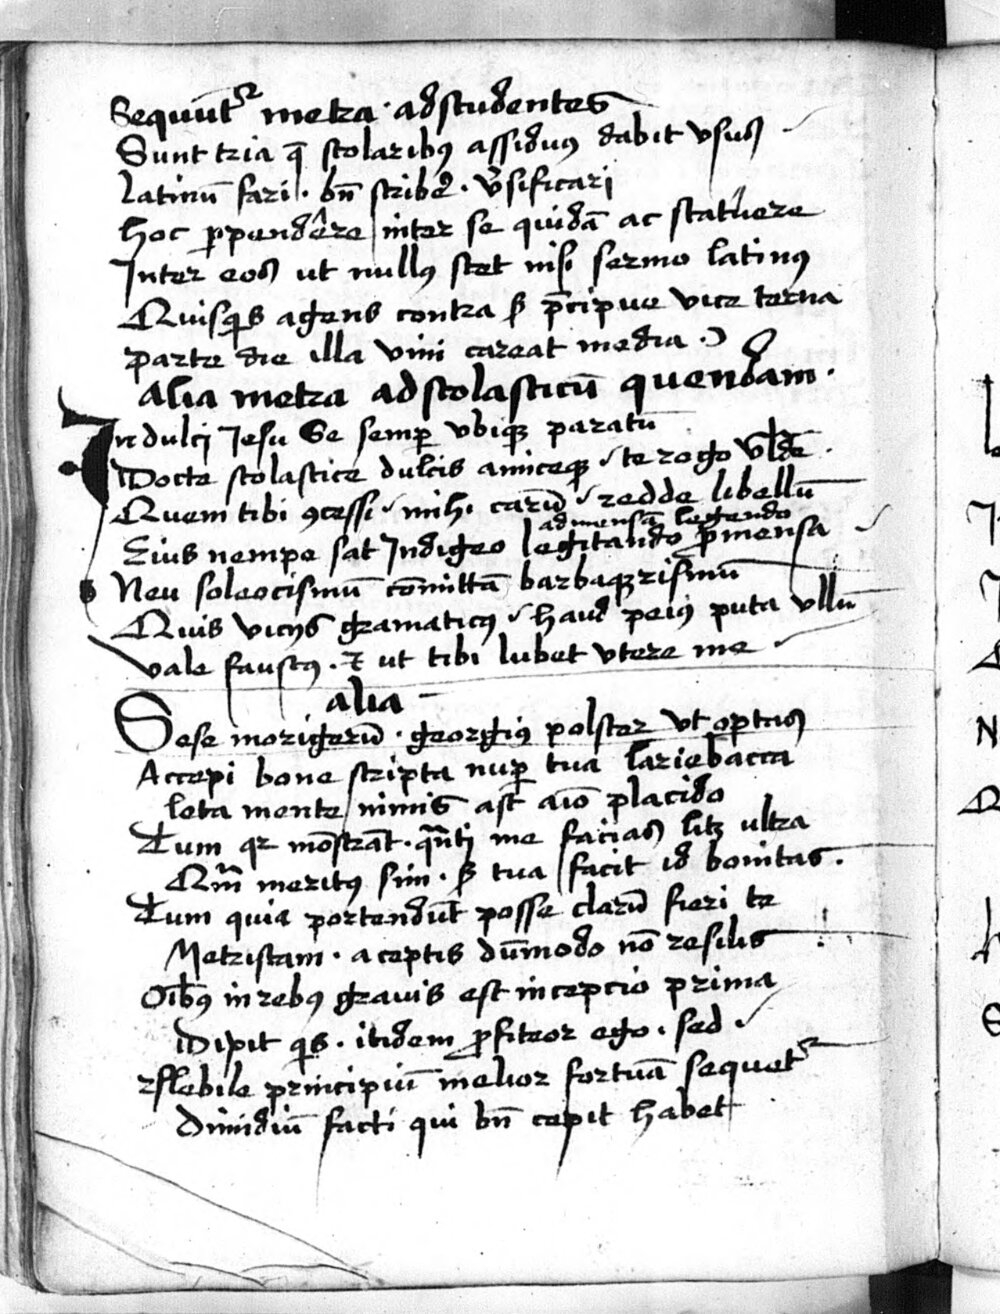 Sequūt᷑ metra · ad studentes
Sunt tria q̄ scolaribꝰ assiduꝰ dabit vsus
Latinū fari · bn̄ scribe᷑ · v̄sificari
Hoc ꝑpendêre inter se quidā ac statuere
Inter eos ut nullꝰ stet nisi sermo latinꝰ
Quisqis agens contra p̄cipue vice terna
Parte die illa vini careat media ·
Alia metra ad scolasticū quendam ·
In dulci Iesu se semꝑ vbiqꝫ paratū
Docte scolastice dulcis amiceqꝫ te rogo vald̄e ·
Quem tibi ꝯcessi mihi carū redde libellū
ad mensā legendo
Eius nempe sat Indigeo legitando p̄ mensa
Neu soleocismū cōmittā barbaqꝫrismū
Quis vicijs gramaticꝰ haud peiꝰ puta vllū
vale faustꝰ · ⁊ ut tibi lubet vtere me
alia
Sese morigerū · georgiꝰ polster vt optas
Accepi bone scripta nuꝑ tua
leta mente nimis ast aīo placido
Tum qꝛ mōstrāt · qñti me facias litꝫ ultra
Qm̄ meritꝰ sim · tua facit id bonitas ·
Tum quia portendūt posse clarū fieri te
Metristam · aceptis dūmodo nō resilis
Oīb̄ꝰ in rebꝰ grauis est incepcio prima
Dixit qis · itidem ꝓfiteor ego · sed
flebile principiū melior fortuā sequet᷑
Dimidiū facti qui bn̄ cepit habet